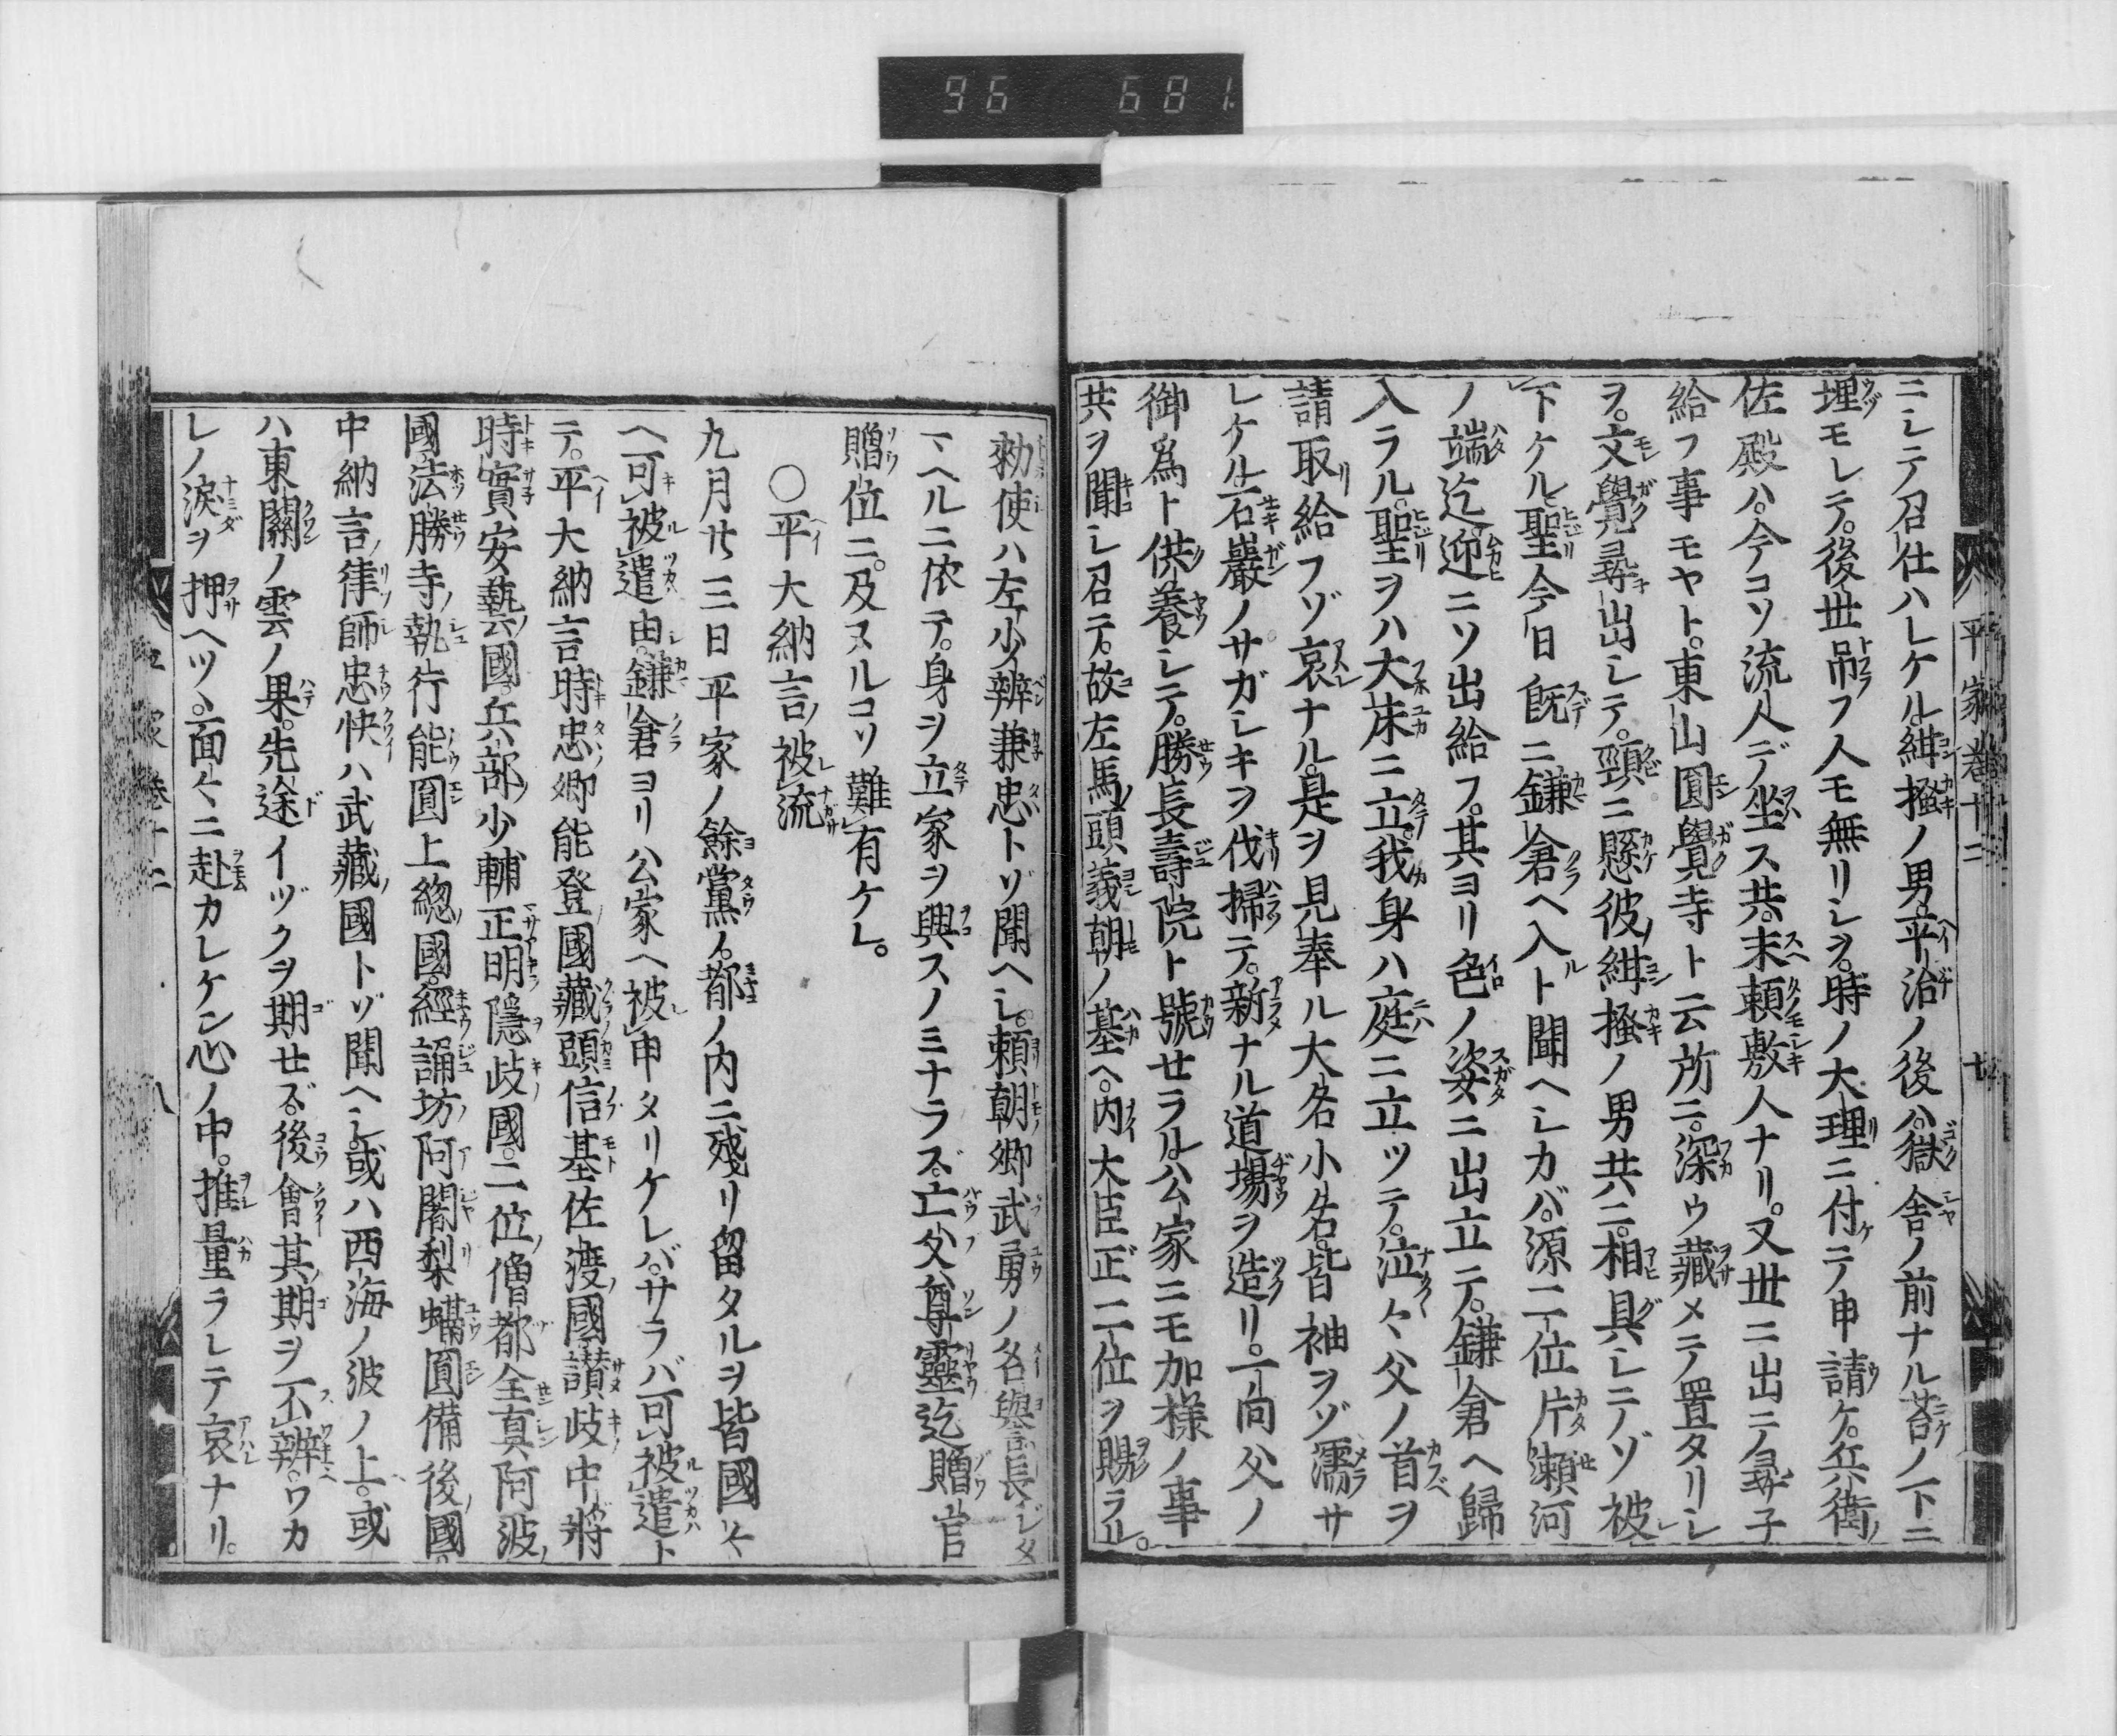 96 681
平家巻十二 七
ニシテ召仕ハレケル紺掻ノ男平治ノ後ハ獄舎ノ前ナル苔ノ下ニ
埋モレテ。後世吊フ人モ無リシヲ。時ノ大理ニ付テ申請ケ。兵衛
佐殿ハ。今コソ流人デ坐ス共。末頼敷人ナリ。又世ニ出テ尋子
給フ事モヤト。東山圓覺寺ト云所ニ。深ウ藏メテ置タリシ
ヲ。文覺尋出シテ。頸ニ懸彼紺掻ノ男共ニ。相具シテゾ被
下ケル。聖今日既ニ鎌倉ヘ入ト聞ヘシカバ。源二位片瀬河
ノ端迄迎ニソ出給フ。其ヨリ色ノ姿ニ出立テ。鎌倉ヘ歸
入ラル。聖ヲハ大床ニ立。我身ハ庭ニ立ツテ。泣々父ノ首ヲ
請取給フゾ哀ナル。是ヲ見奉ル大名小名。皆袖ヲゾ濡サ
レケル。石巖ノサガシキヲ伐掃テ。新ナル道場ヲ造リ。一向父ノ
御爲ト供養シテ。勝長壽院ト號セラル。公家ニモ加様ノ事
共ヲ聞シ召テ。故左馬頭義朝ノ墓ヘ。内大臣正二位ヲ賜ラル。
勅使ハ左少辨兼忠トゾ聞ヘシ。頼朝卿武勇ノ名譽長シタ
マヘルニ依テ。身ヲ立家ヲ興スノミナラズ。亡父尊靈迄贈官
贈位ニ。及ヌルコソ難有ケレ。
○平大納言被流
九月廿三日平家ノ餘黨ノ。都ノ内ニ殘リ留タルヲ皆國々
ヘ可被遣由。鎌倉ヨリ公家ヘ被申タリケレバ。サラバ可被遣ト
テ。平大納言時忠卿能登國藏頭信基佐渡國讃岐中將
時實安藝國。兵部少輔正明隱岐國。二位僧都全真阿波
國。法勝寺執行能圓上總國。經誦坊阿闍梨蝺圓備後國
中納言律師忠快ハ武藏國トゾ聞ヘシ。或ハ西海ノ波ノ上。或
ハ東關ノ雲ノ果。先途イヅクヲ期セズ。後會其期ヲ不辨。ワカ
レノ涙ヲ押ヘツヽ。面々ニ赴カレケン心ノ中。推量ラレテ哀ナリ。
平家巻十二 八